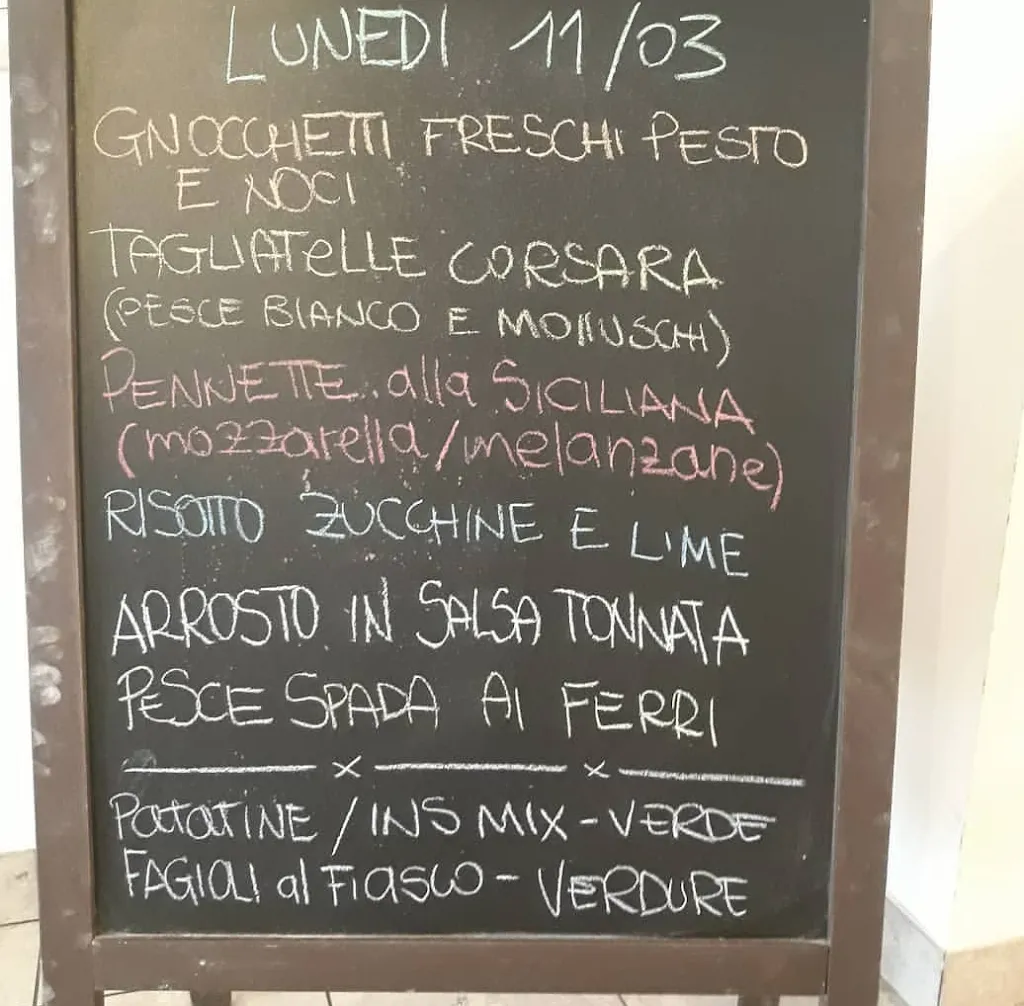 LUNEDI 11/03
GNOCCHETTI FRESCHI PESTO
E NOCI
TAGLIATELLE CORSARA
(PESCE BIANCO E MOLLUSCHI)
PENNETTE..alla SICILIANA
(mozzarella/melanzane)
RISOTTO ZUCCHINE E LIME
ARROSTO IN SALSA TONNATA
PESCE SPADA AI FERRI
PATATINE / INS MIX - VERDE
FAGIOLI al FIASCO - VERDURE